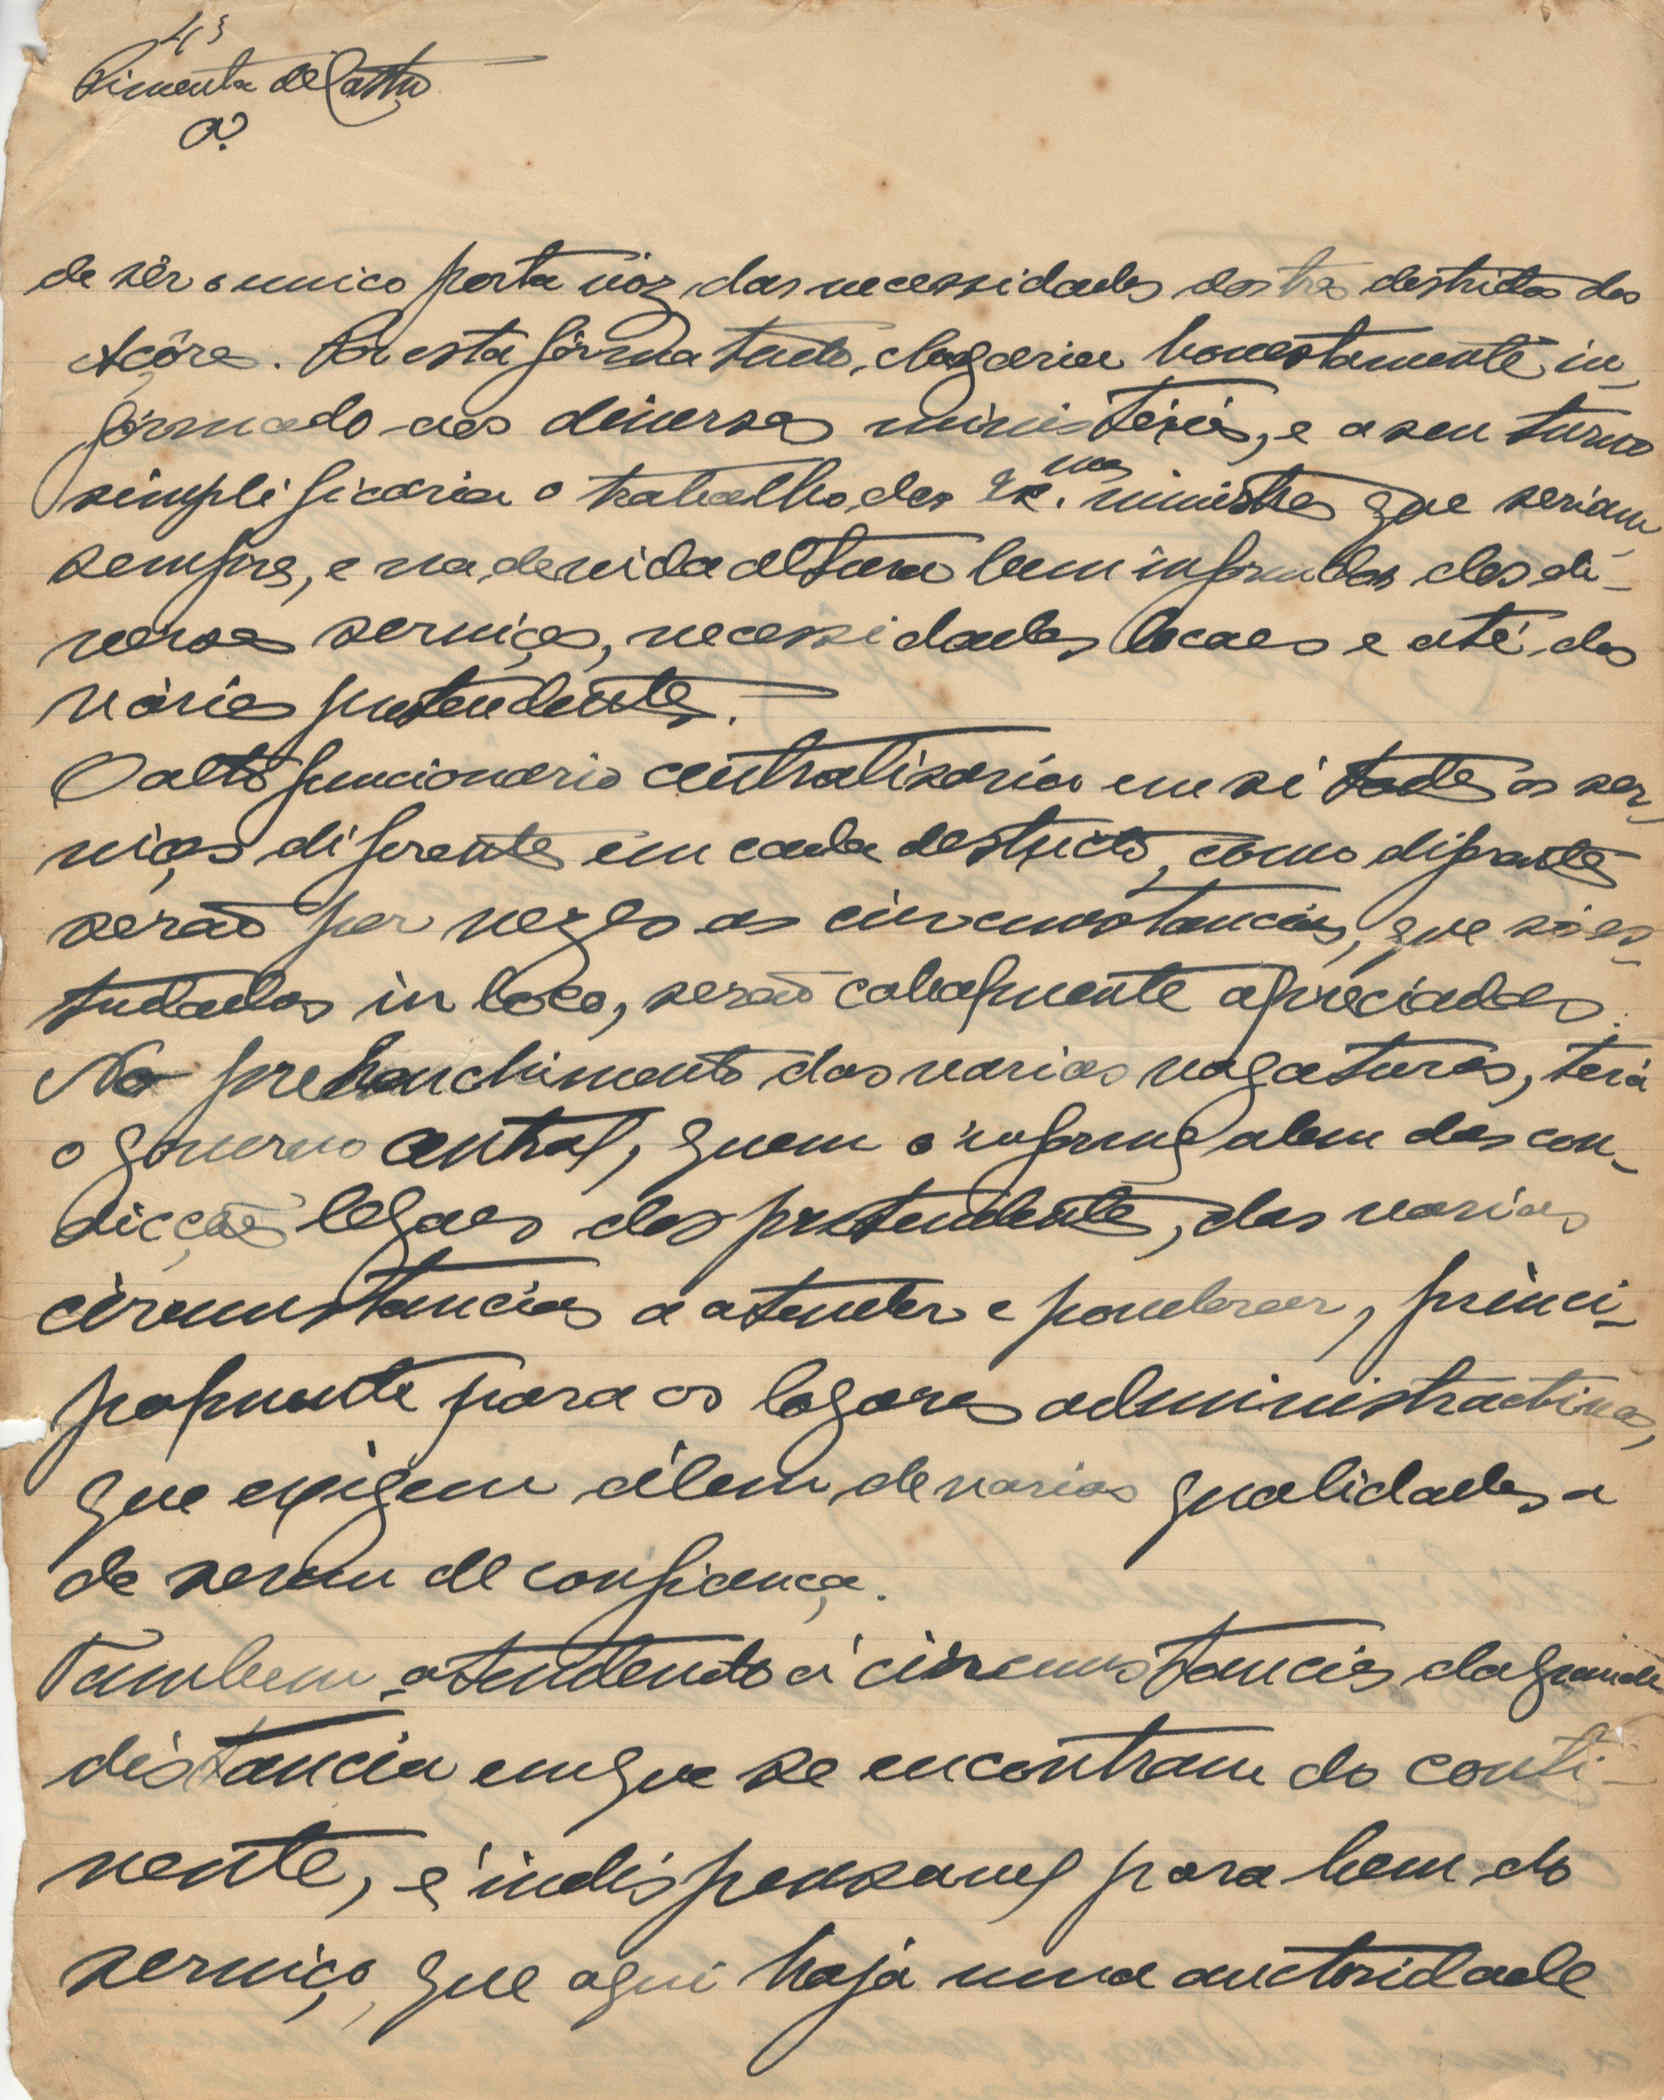 43
Pimenta de Castro
de sêr o unico porta vóz das necessidades dos tres destrictos dos
Açôres. Por esta fórma tudo, chegaria honestamente in-
formado aos diversos ministerios, e a seu turno
simplificaria o trabalho dos Ex.mos ministros que seriam
sempre, e na devida altura bem informados dos di-
versos serviços, necessidades locaes e até dos
vários pretendentes.
O alto funcionario centralisaria em si todos os ser-
viços diferentes em cada destricto, como diferentes
serão por vezes as circumstancias, que só es-
tudadas in loco, serão cabalmente apreciadas.
No prehenchimento das varias vagaturas, terá
o governo central, quem o informe alem das con-
dicções legaes dos pretendentes, das varias
circumstancias a atender e ponderar, princi-
palmente para os logares administractivos,
que exigem álem de varias qualidades a
de serem de confiança.
Tambem atendendo á circumstancia da grande
distancia em que se encontram do conti-
nente, é indispensavel para bem do
serviço, que aqui haja uma auctoridade